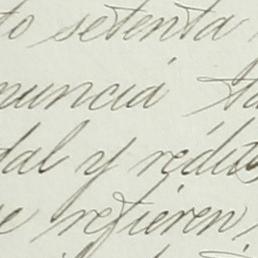 to setenta
nuncia ta
dal y rédit
se refieren